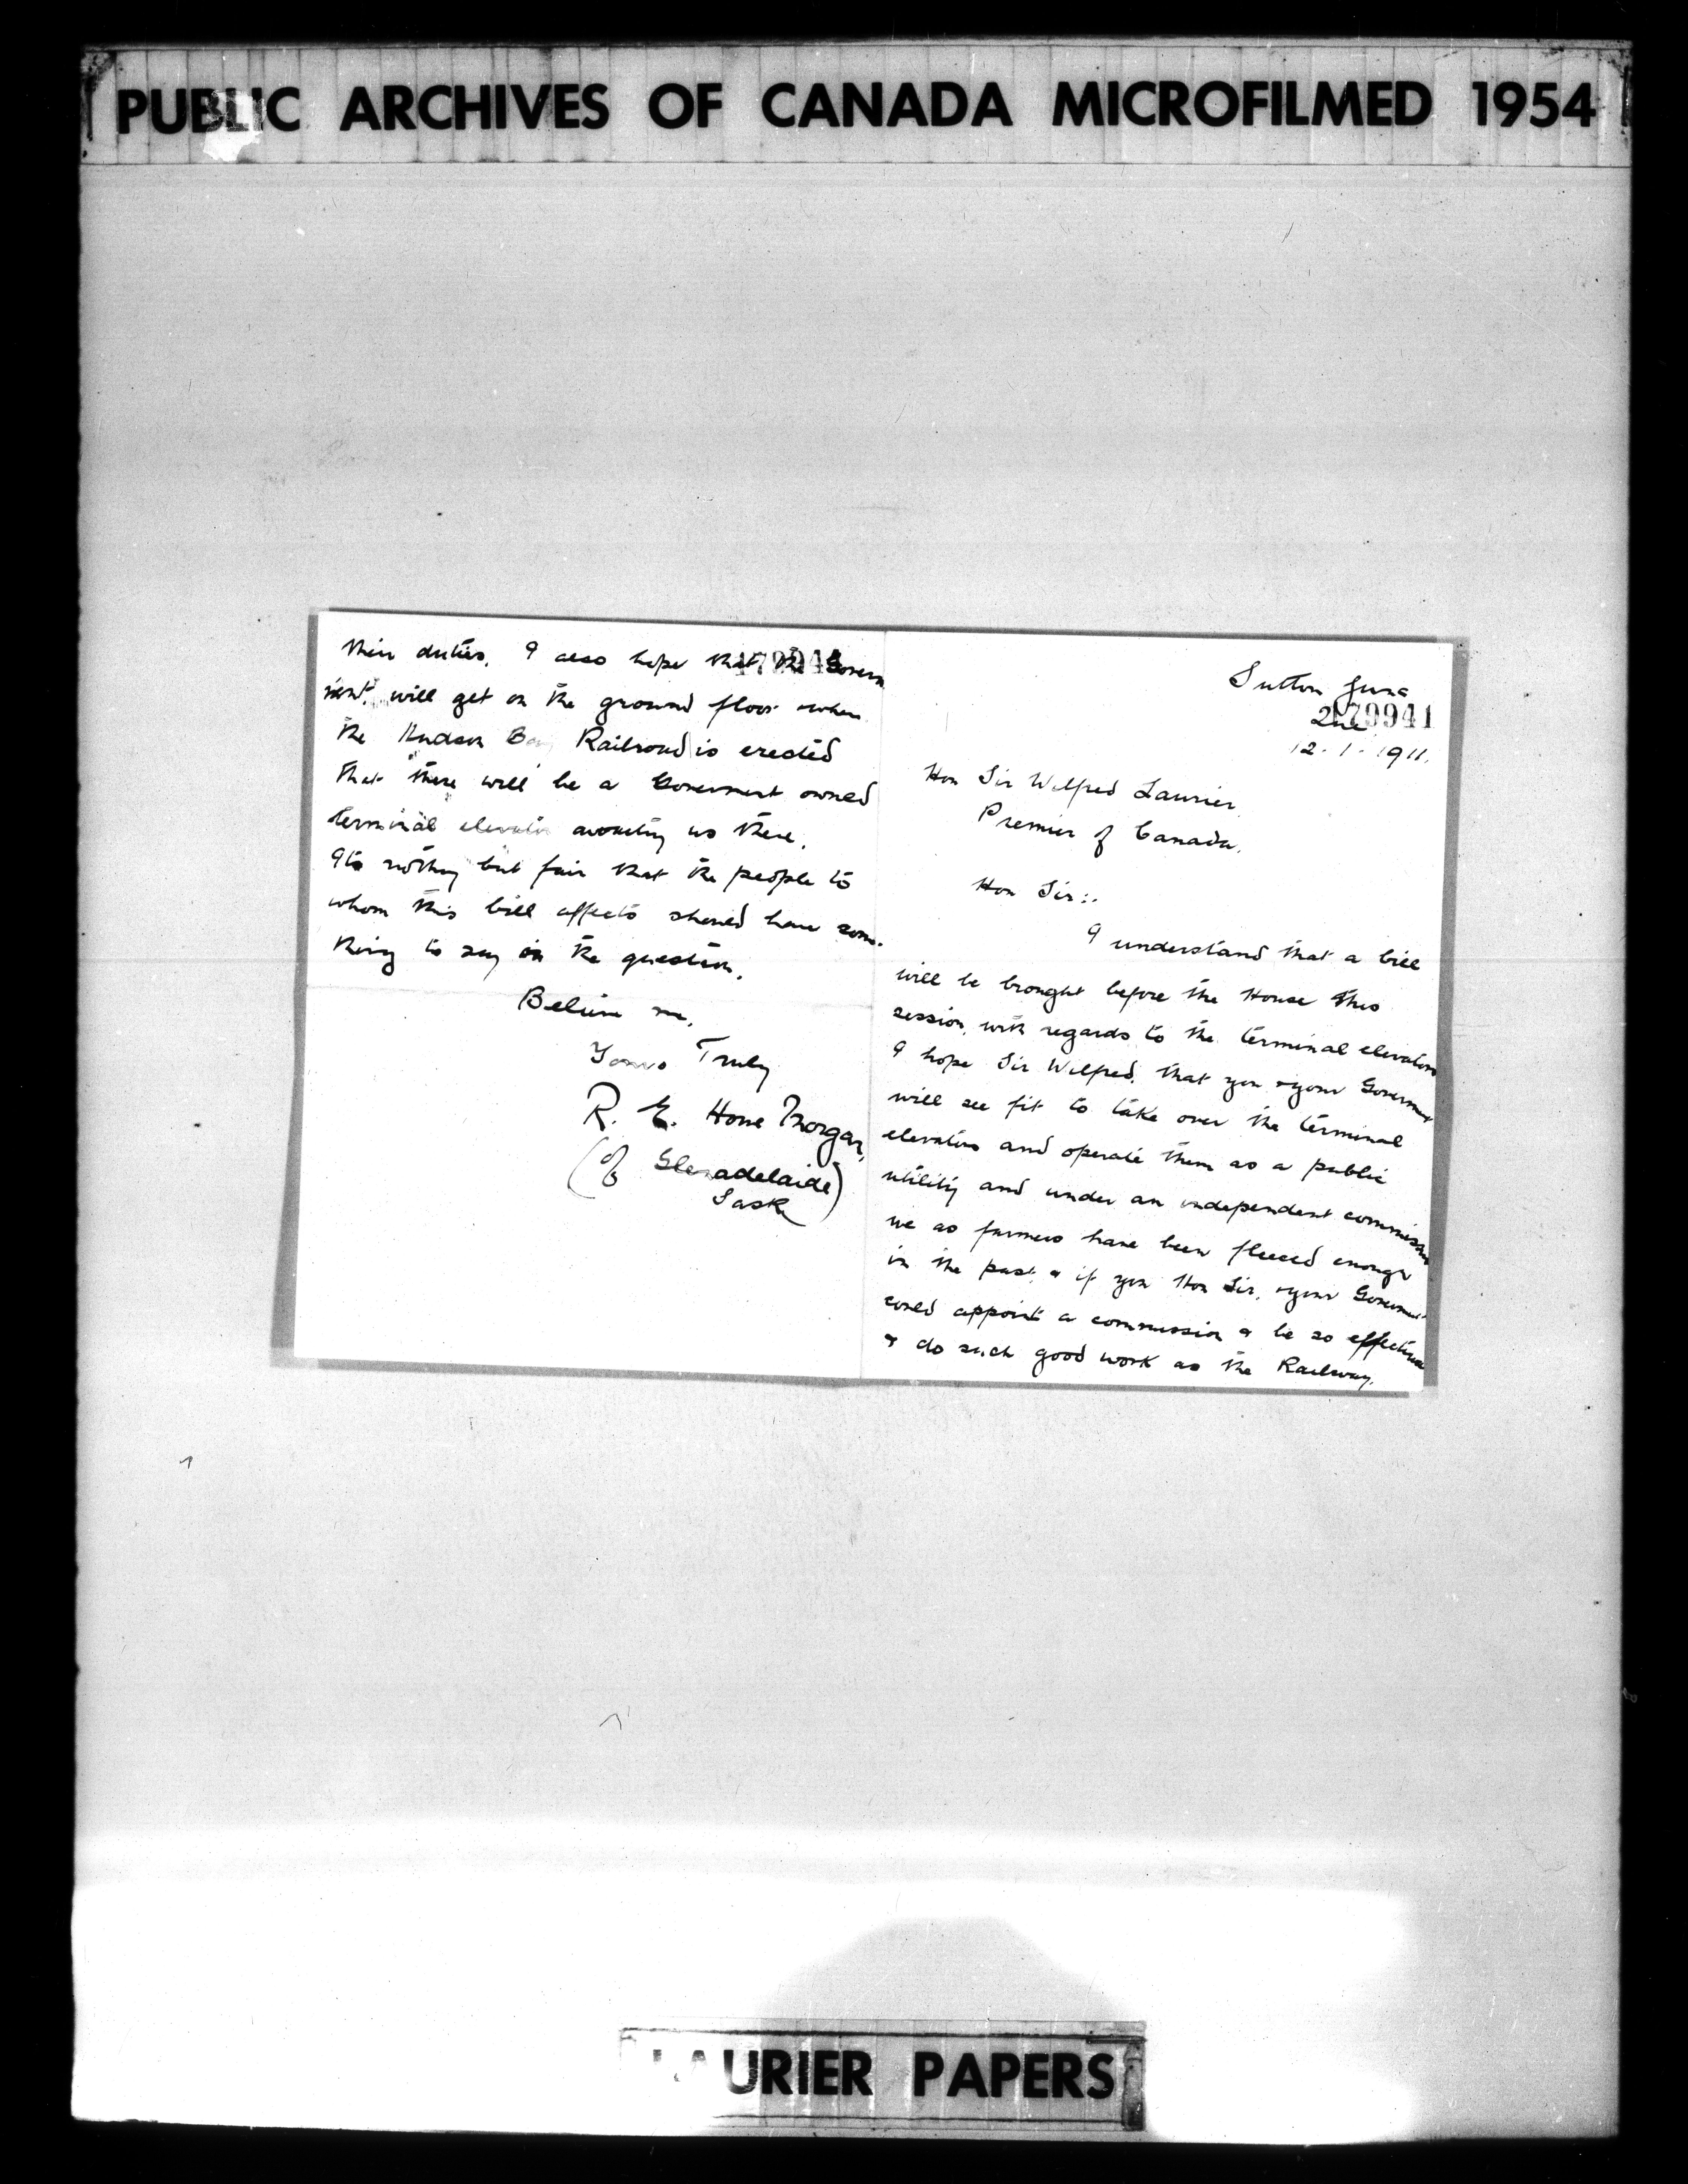 PUBLIC ARCHIVES OF CANADA MICROFILMED 1954
their duties. I also hope that the Govern
ment will get on the ground floor when
the Hudson Bay Railroad is erected
that there will be a Goverment owned
terminal elevator awaiting us there.
Its nothing but fair that the people to
whom this bill affects should have some-
thing to say in the question.
Believe me,
Yours Truly
R. E. Hone Morgan,
(of Glenadelaide)
Sask
Sutton
479941
12-1-1911.
Hon Sir Wilfred Laurier,
Premier of Canada.
Hon Sir:.
I understand that a bill
will be brought before the House this
session, with regards to the terminal elevators
I hope Sir Wilfred, that you & your Goverment
will see fit to take over the terminal
elevators and operate them as a public
utility and under an independent commission
we as farmers have been fleeced enough
in the past, & if you Hon Sir, & your Goverment
could appoint a commission & be so effective
& do such good work as the Railway.
LAURIER PAPERS